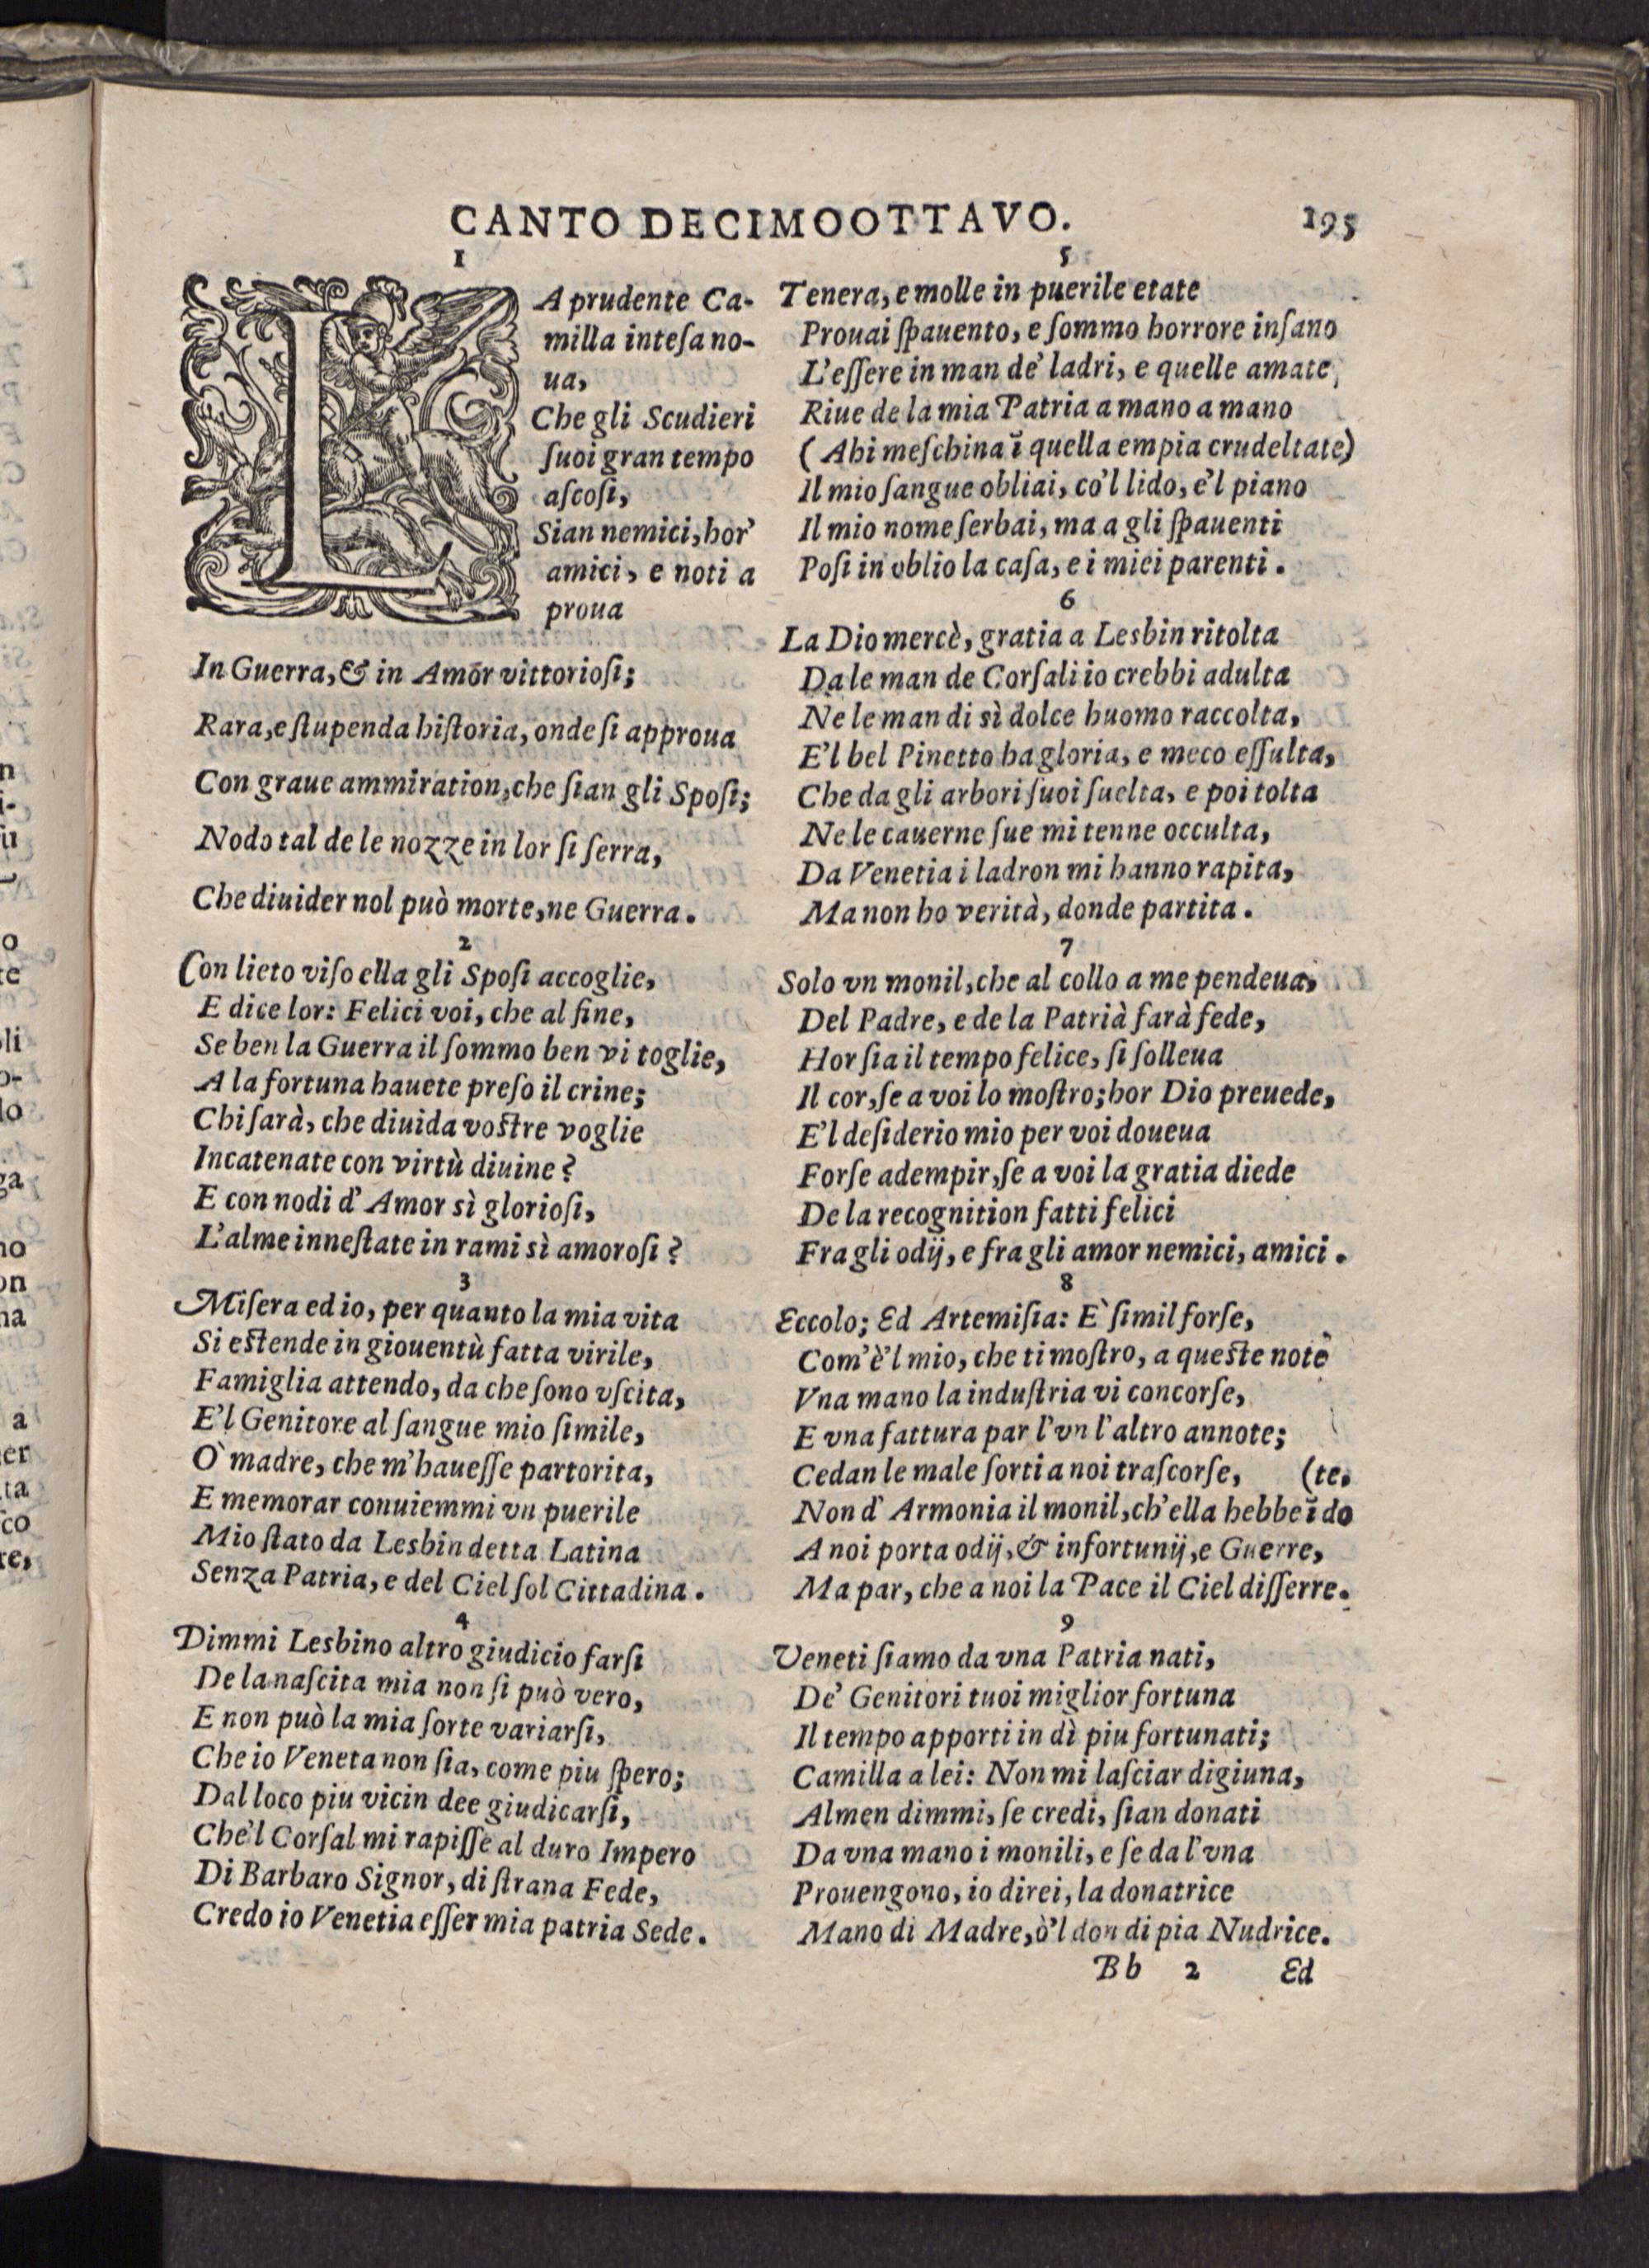 CANTO DECIMOOTTAVO. 195
1
LA prudente Ca-
milla inteſa no-
ua,
Che gli Scudieri
ſuoi gran tempo
aſcoſi,
Sian nemici, hor'
amici, e noti a
proua
In Guerra, & in Amor vittorioſi;
Rara, e ſtupenda hiſtoria, onde ſi approua
Con graue ammiration, che ſian gli Spoſi;
Nodo tal de le nozze in lor ſi ſerra,
Che diuider nol può morte, ne Guerra.
2
Con lieto viſo ella gli Spoſi accoglie,
E dice lor: Felici voi, che al fine,
Se ben la Guerra il ſommo ben vi toglie,
A la fortuna hauete preſo il crine;
Chi ſarà, che diuida voſtre voglie
Incatenate con virtù diuine?
E con nodi d' Amor sì glorioſi,
L'alme inneſtate in rami sì amoroſi?
3
Miſera ed io, per quanto la mia vita
Si eſtende in giouentù fatta virile,
Famiglia attendo, da che ſono vſcita,
E'l Genitore al ſangue mio ſimile,
O' madre, che m'haueſſe partorita,
E memorar conuiemmi vn puerile
Mio ſtato da Lesbin detta Latina
Senza Patria, e del Ciel ſol Cittadina.
4
Dimmi Lesbino altro giudicio farſi
De la naſcita mia non ſi può vero,
E non può la mia ſorte variarſi,
Che io Veneta non ſia, come piu ſpero;
Dal loco piu vicin dee giudicarſi,
Che'l Corſal mi rapiſſe al duro Impero
Di Barbaro Signor, di ſtrana Fede,
Credo io Venetia eſſer mia patria Sede.
5
Tenera, e molle in puerile etate
Prouai ſpauento, e ſommo horrore inſano
L'eſſere in man de' ladri, e quelle amate,
Riue de la mia Patria a mano a mano
(Ahi meſchina ĩ quella empia crudeltate)
Il mio ſangue obliai, co'l lido, e'l piano
Il mio nome ſerbai, ma a gli ſpauenti
Poſi in oblio la caſa, e i miei parenti.
6
La Dio mercè, gratia a Lesbin ritolta
Da le man de Corſali io crebbi adulta
Ne le man di sì dolce huomo raccolta,
E'l bel Pinetto ha gloria, e meco eſſulta,
Che da gli arbori ſuoi ſuelta, e poi tolta
Ne le cauerne ſue mi tenne occulta,
Da Venetia i ladron mi hanno rapita,
Ma non ho verità, donde partita.
7
Solo vn monil, che al collo a me pendeua,
Del Padre, e de la Patrià farà fede,
Hor ſia il tempo felice, ſi ſolleua
Il cor, ſe a voi lo moſtro; hor Dio preuede,
E'l deſiderio mio per voi doueua
Forſe adempir, ſe a voi la gratia diede
De la recognition fatti felici
Fra gli odij, e fra gli amor nemici, amici.
8
Eccolo; Ed Artemiſia: E' ſimil forſe,
Com'è'l mio, che ti moſtro, a queſte note
Vna mano la induſtria vi concorſe,
E vna fattura par l'vn l'altro annote;
Cedan le male ſorti a noi traſcorſe, (te.
Non d' Armonia il monil, ch'ella hebbe ĩ do
A noi porta odij, & infortunij, e Guerre,
Ma par, che a noi la Pace il Ciel diſſerre.
9
Veneti ſiamo da vna Patria nati,
De' Genitori tuoi miglior fortuna
Il tempo apporti in dì piu fortunati;
Camilla a lei: Non mi laſciar digiuna,
Almen dimmi, ſe credi, ſian donati
Da vna mano i monili, e ſe da l'vna
Prouengono, io direi, la donatrice
Mano di Madre, ò'l don di pia Nudrice.
Bb 2 Ed